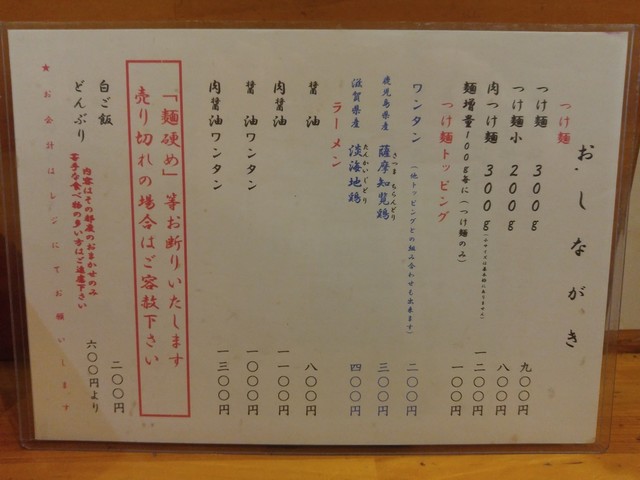 おしながき
つけ麺
つけ麺 300g 九〇〇円
つけ麺小 200g 八〇〇円
肉つけ麺 300g 一二〇〇円
麺増量100g毎に(つけ麺のみ) 一〇〇円
つけ麺トッピング
ワンタン (他トッピングとの組み合わせも出来ます) 二〇〇円
鹿児島県産 薩摩知覧鶏 さつま ちらんどり 三〇〇円
滋賀県産 淡海地鶏 たんかいじどり 四〇〇円
ラーメン
醤油 八〇〇円
肉醤油 一一〇〇円
醤油ワンタン 一〇〇〇円
肉醤油ワンタン 一三〇〇円
「麺硬め」等お断りいたします
売り切れの場合はご容赦下さい
白ご飯 二〇〇円
どんぶり 六〇〇円より
内容はその都度のおまかせのみ
苦手な食べ物の多い方はご遠慮下さい
★お会計はレジにてお願いします